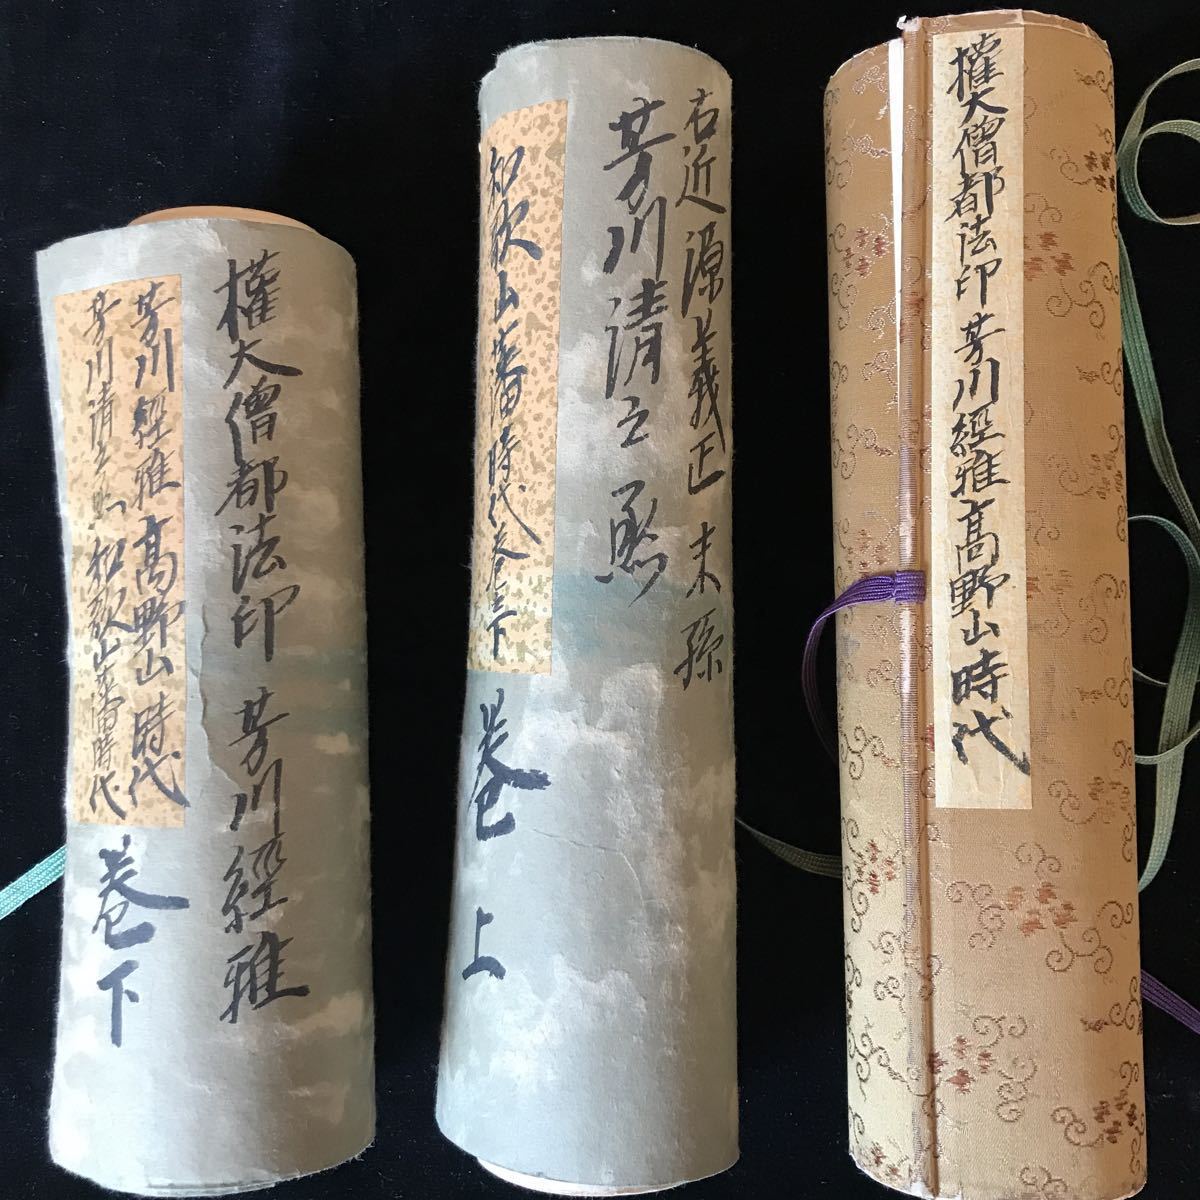 權大僧都法印 芳川經雅 高野山時代
右近源義正 末孫
芳川清之
和歌山藩時代
卷上
權大僧都法印 芳川經雅
芳川經雅 高野山時代
芳川清之 和歌山藩時代
卷下